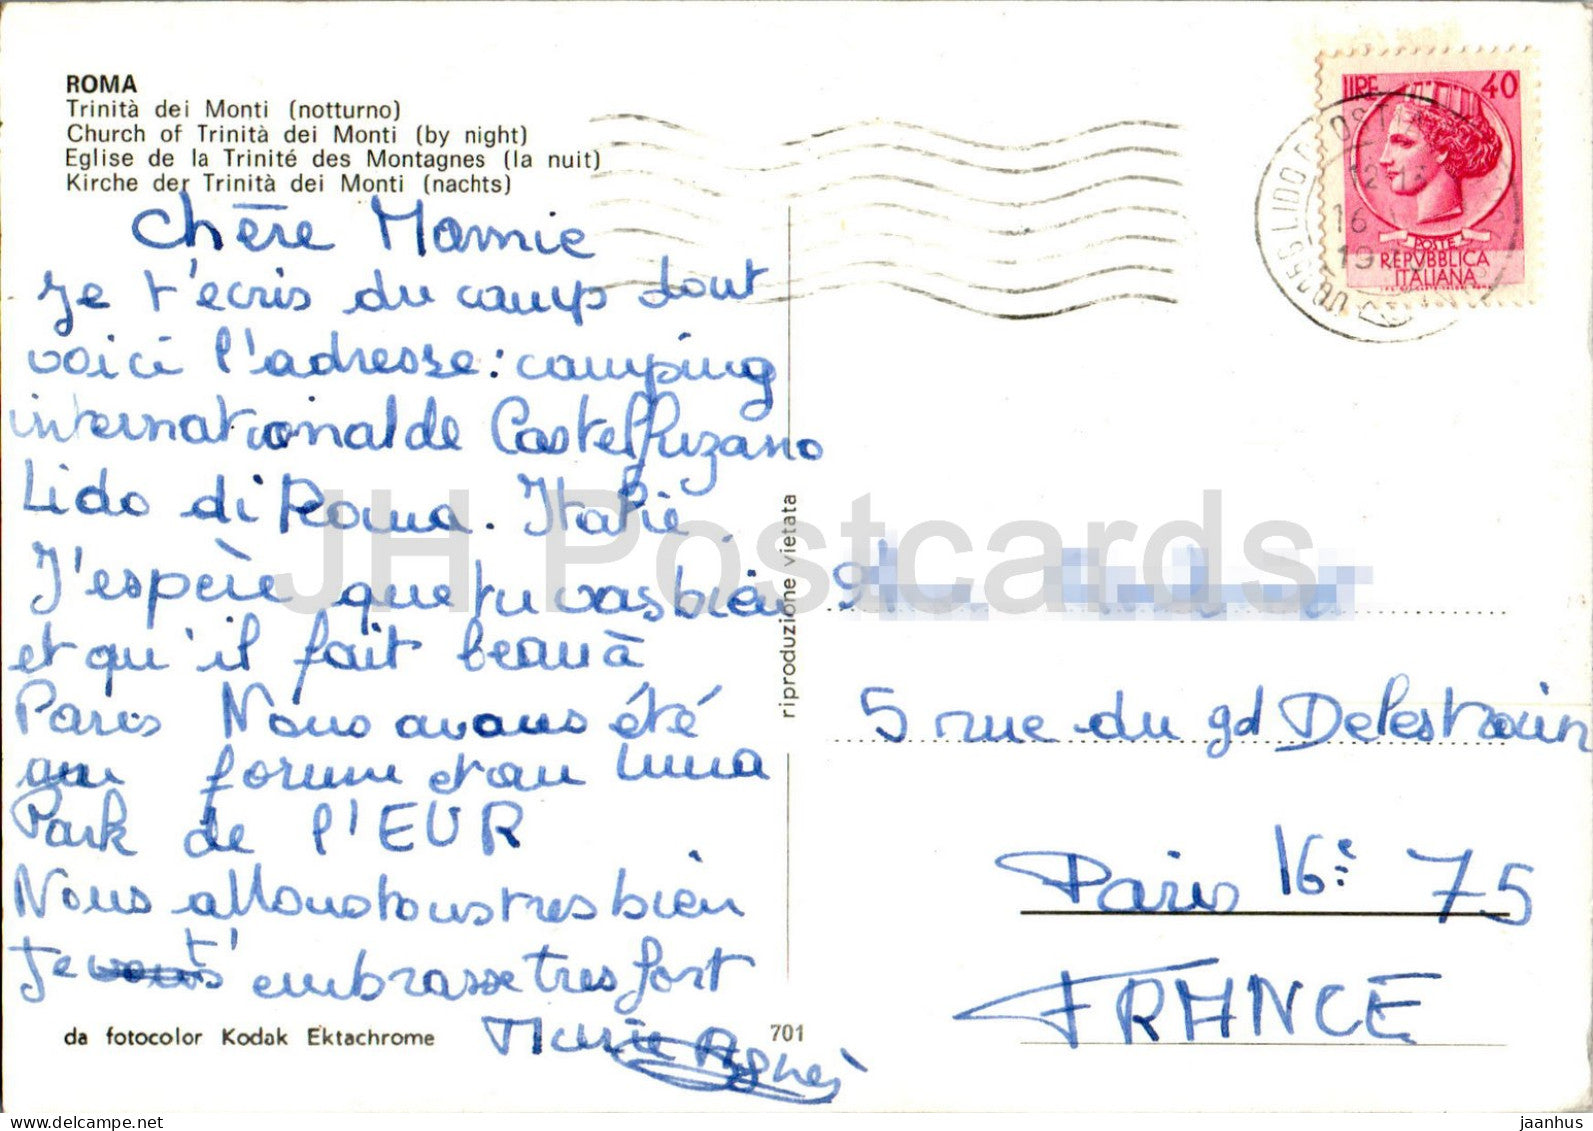 ROMA
Trinità dei Monti (notturno)
Church of Trinità dei Monti (by night)
Eglise de la Trinité des Montagnes (la nuit)
Kirche der Trinità dei Monti (nachts)
Chère Mamie
Je t'ecris du camp dont
voici l'adresse: camping
international de Castelfuzano
Lido di Roma. Italie.
J'espère que tu vas bien
et qu'il fait beau à
Paris Nous avons été
au forum et au luna
Park de l'EUR
Nous allons tous tres bien
Je t'embrasse tres fort
Marie Agnès
da fotocolor Kodak Ektachrome
701
riproduzione vietata
LIRE 40
POSTE
REPVBBLICA
ITALIANA
12
16
19
LIDO
OSTIA
5 rue du gd Delestrain
Paris 16e 75
FRANCE
JH Postcards
jaanhus